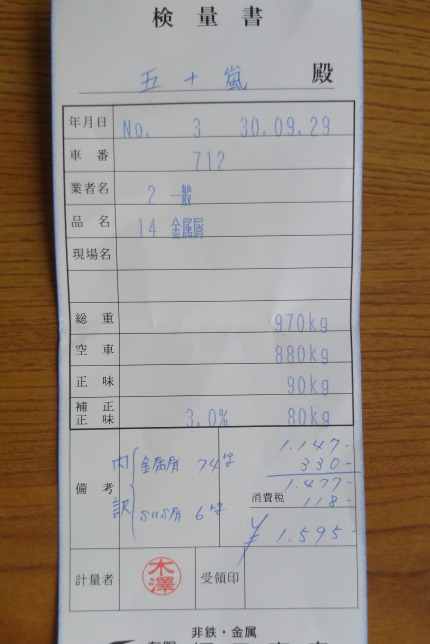 検量書
五十嵐 殿
年月日 No. 3 30.09.29
車番 712
業者名 2 一般
品名 14 金属屑
現場名
総重 970kg
空車 880kg
正味 90kg
補正正味 3.0% 80kg
備考 内訳 金属屑 74㌔ 1.147-
330-
1.477-
SUS屑 6㌔ 消費税 118-
¥1.595-
計量者 木澤 受領印
非鉄・金属